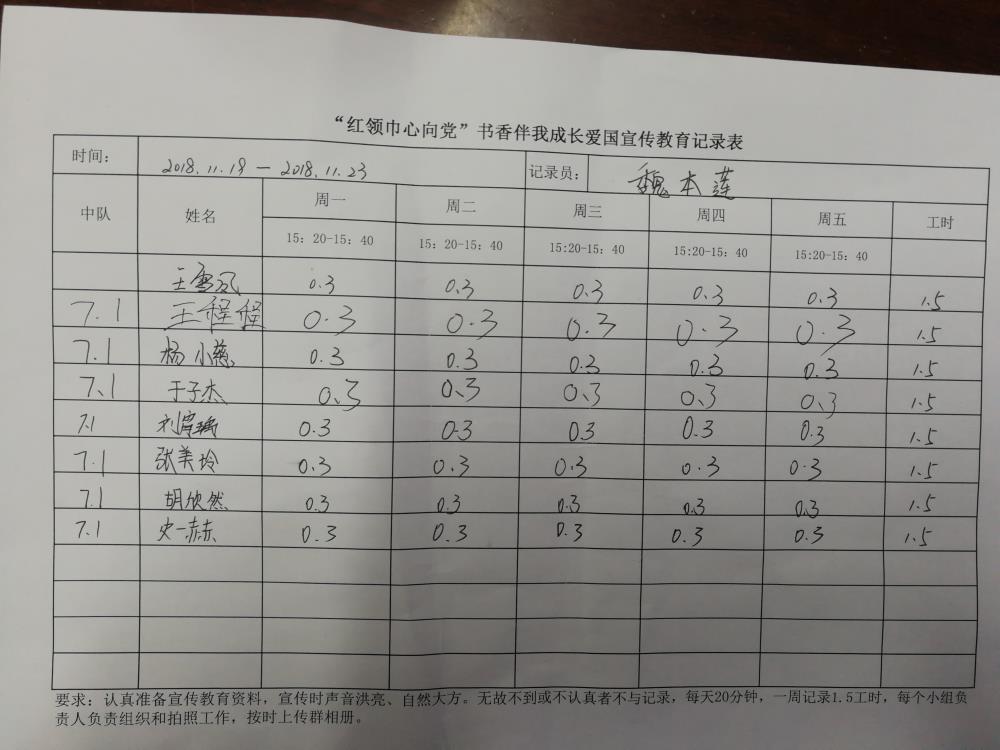 “红领巾心向党”书香伴我成长爱国宣传教育记录表
时间： 2018.11.19 — 2018.11.23 记录员： 魏本莲
中队 姓名 周一 周二 周三 周四 周五 工时
15：20-15：40 15：20-15：40 15:20-15：40 15:20-15：40 15:20-15：40
王雪凤 0.3 0.3 0.3 0.3 0.3 1.5
7.1 王程程 0.3 0.3 0.3 0.3 0.3 1.5
7.1 杨小慈 0.3 0.3 0.3 0.3 0.3 1.5
7、1 于子杰 0、3 0、3 0、3 0、3 0、3 1.5
7.1 0.3 0.3 0.3 0.3 0.3 1.5
7.1 张美玲 0.3 0.3 0.3 0.3 0.3 1.5
7.1 胡欣然 0.3 0.3 0.3 0.3 0.3 1.5
7.1 史一赫 0.3 0.3 0.3 0.3 0.3 1.5
要求：认真准备宣传教育资料，宣传时声音洪亮、自然大方。无故不到或不认真者不与记录，每天20分钟，一周记录1.5工时，每个小组负
责人负责组织和拍照工作，按时上传群相册。